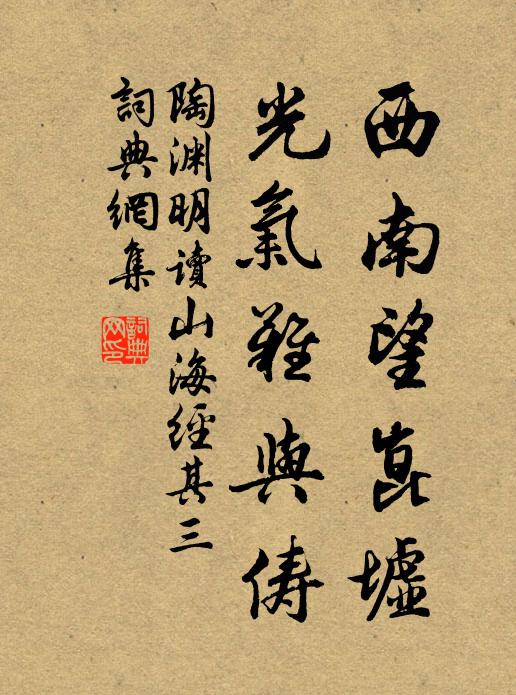 西南望崑墟
光氣難與儔
陶渊明讀山海經其三
詞典網集
詞典网印